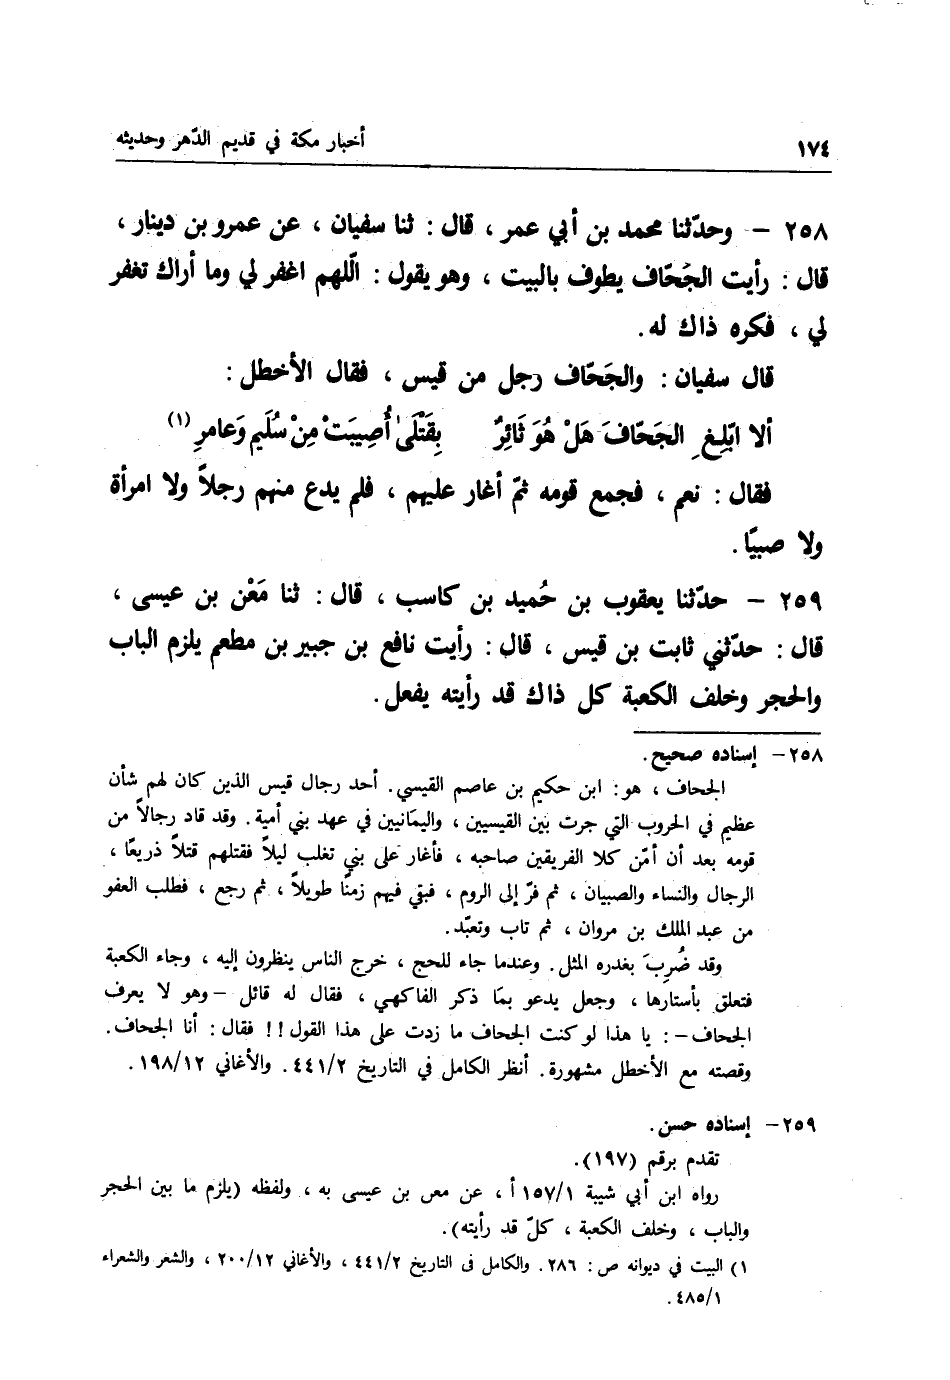 ١٧٤ أخبار مكة في قديم الدّهر وحديثه
٢٥٨ – وحدّثنا محمد بن أبي عمر ، قال : ثنا سفيان ، عن عمرو بن دينار ،
قال : رأيت الجُحّاف يطوف بالبيت ، وهو يقول : اللّهم اغفر لي وما أراك تغفر
لي ، فكره ذاك له .
قال سفيان : والجَحّاف رجل من قيس ، فقال الأخطل :
ألا ابّلِغِ الجَحّافَ هَلْ هُوَ ثَائِرٌ بِقَتْلَىٰ أُصِيبَتْ مِنْ سُلَيمٍ وَعامرِ (١)
فقال : نعم ، فجمع قومه ثمّ أغار عليهم ، فلم يدع منهم رجلاً ولا امرأة
ولا صبيًا .
٢٥٩ – حدّثنا يعقوب بن حُميد بن كاسب ، قال : ثنا مَعْن بن عيسى ،
قال : حدّثني ثابت بن قيس ، قال : رأيت نافع بن جبير بن مطعم يلزم الباب
والحجر وخلف الكعبة كل ذاك قد رأيته يفعل .
٢٥٨– إسناده صحيح .
الجحاف ، هو : ابن حكيم بن عاصم القيسي . أحد رجال قيس الذين كان لهم شأن
عظيم في الحروب التي جرت بين القيسيين ، واليمانيين في عهد بني أمية . وقد قاد رجالاً من
قومه بعد أن أمّن كلا الفريقين صاحبه ، فأغار على بني تغلب ليلاً فقتلهم قتلاً ذريعًا ،
الرجال والنساء والصبيان ، ثم فرّ إلى الروم ، فبقي فيهم زمنًا طويلاً ، ثم رجع ، فطلب العفو
من عبد الملك بن مروان ، ثم تاب وتعبّد .
وقد ضُرِبَ بغدره المثل . وعندما جاء للحج ، خرج الناس ينظرون إليه ، وجاء الكعبة
فتعلق بأستارها ، وجعل يدعو بمَا ذكر الفاكهي ، فقال له قائل – وهو لا يعرف
الجحاف – : يا هذا لو كنت الجحاف ما زدت على هذا القول !! فقال : أنا الجحاف .
وقصته مع الأخطل مشهورة . أنظر الكامل في التاريخ ٤٤١/٢ . والأغاني ١٩٨/١٢ .
٢٥٩– إسناده حسن .
تقدم برقم (١٩٧) .
رواه ابن أبي شيبة ١٥٧/١ أ ، عن معن بن عيسى به ، ولفظه (يلزم ما بين الحجر
والباب ، وخلف الكعبة ، كلّ قد رأيته) .
١) البيت في ديوانه ص : ٢٨٦ . والكامل في التاريخ ٤٤١/٢ ، والأغاني ٢٠٠/١٢ ، والشعر والشعراء
٤٨٥/١ .